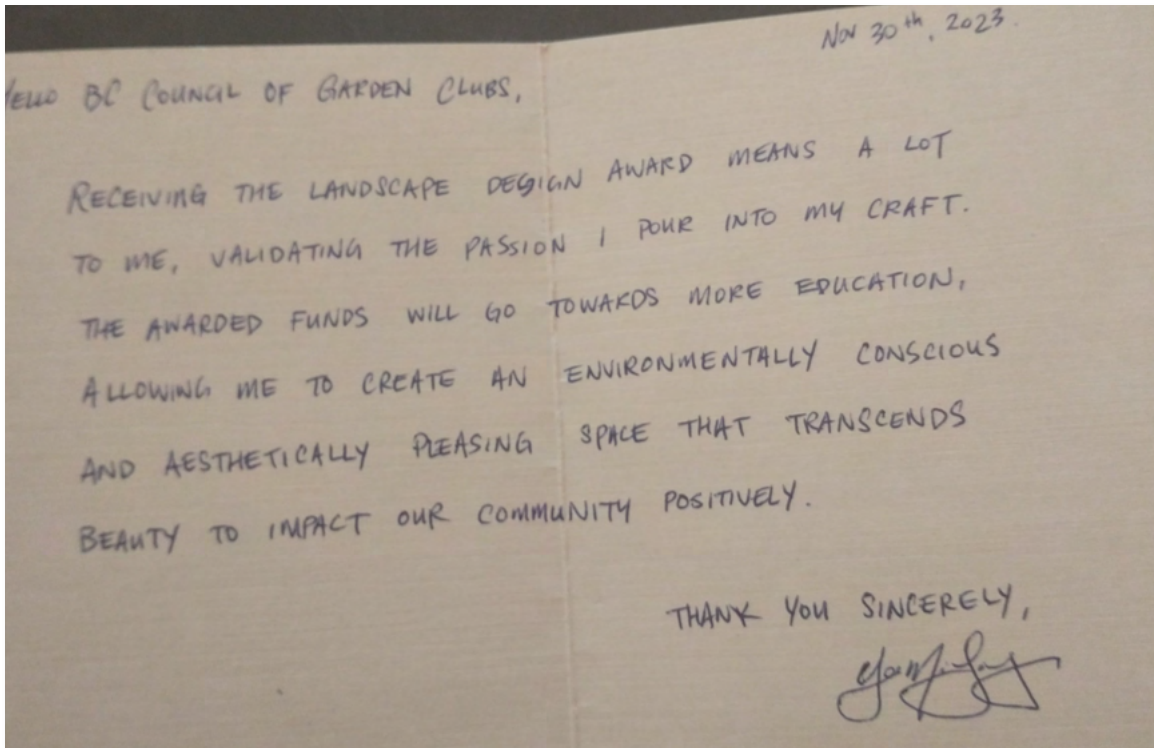 Nov 30th, 2023.
Hello BC COUNCIL OF GARDEN CLUBS,
RECEIVING THE LANDSCAPE DESIGN AWARD MEANS A LOT
TO ME, VALIDATING THE PASSION I POUR INTO MY CRAFT.
THE AWARDED FUNDS WILL GO TOWARDS MORE EDUCATION,
ALLOWING ME TO CREATE AN ENVIRONMENTALLY CONSCIOUS
AND AESTHETICALLY PLEASING SPACE THAT TRANSCENDS
BEAUTY TO IMPACT OUR COMMUNITY POSITIVELY.
THANK YOU SINCERELY,